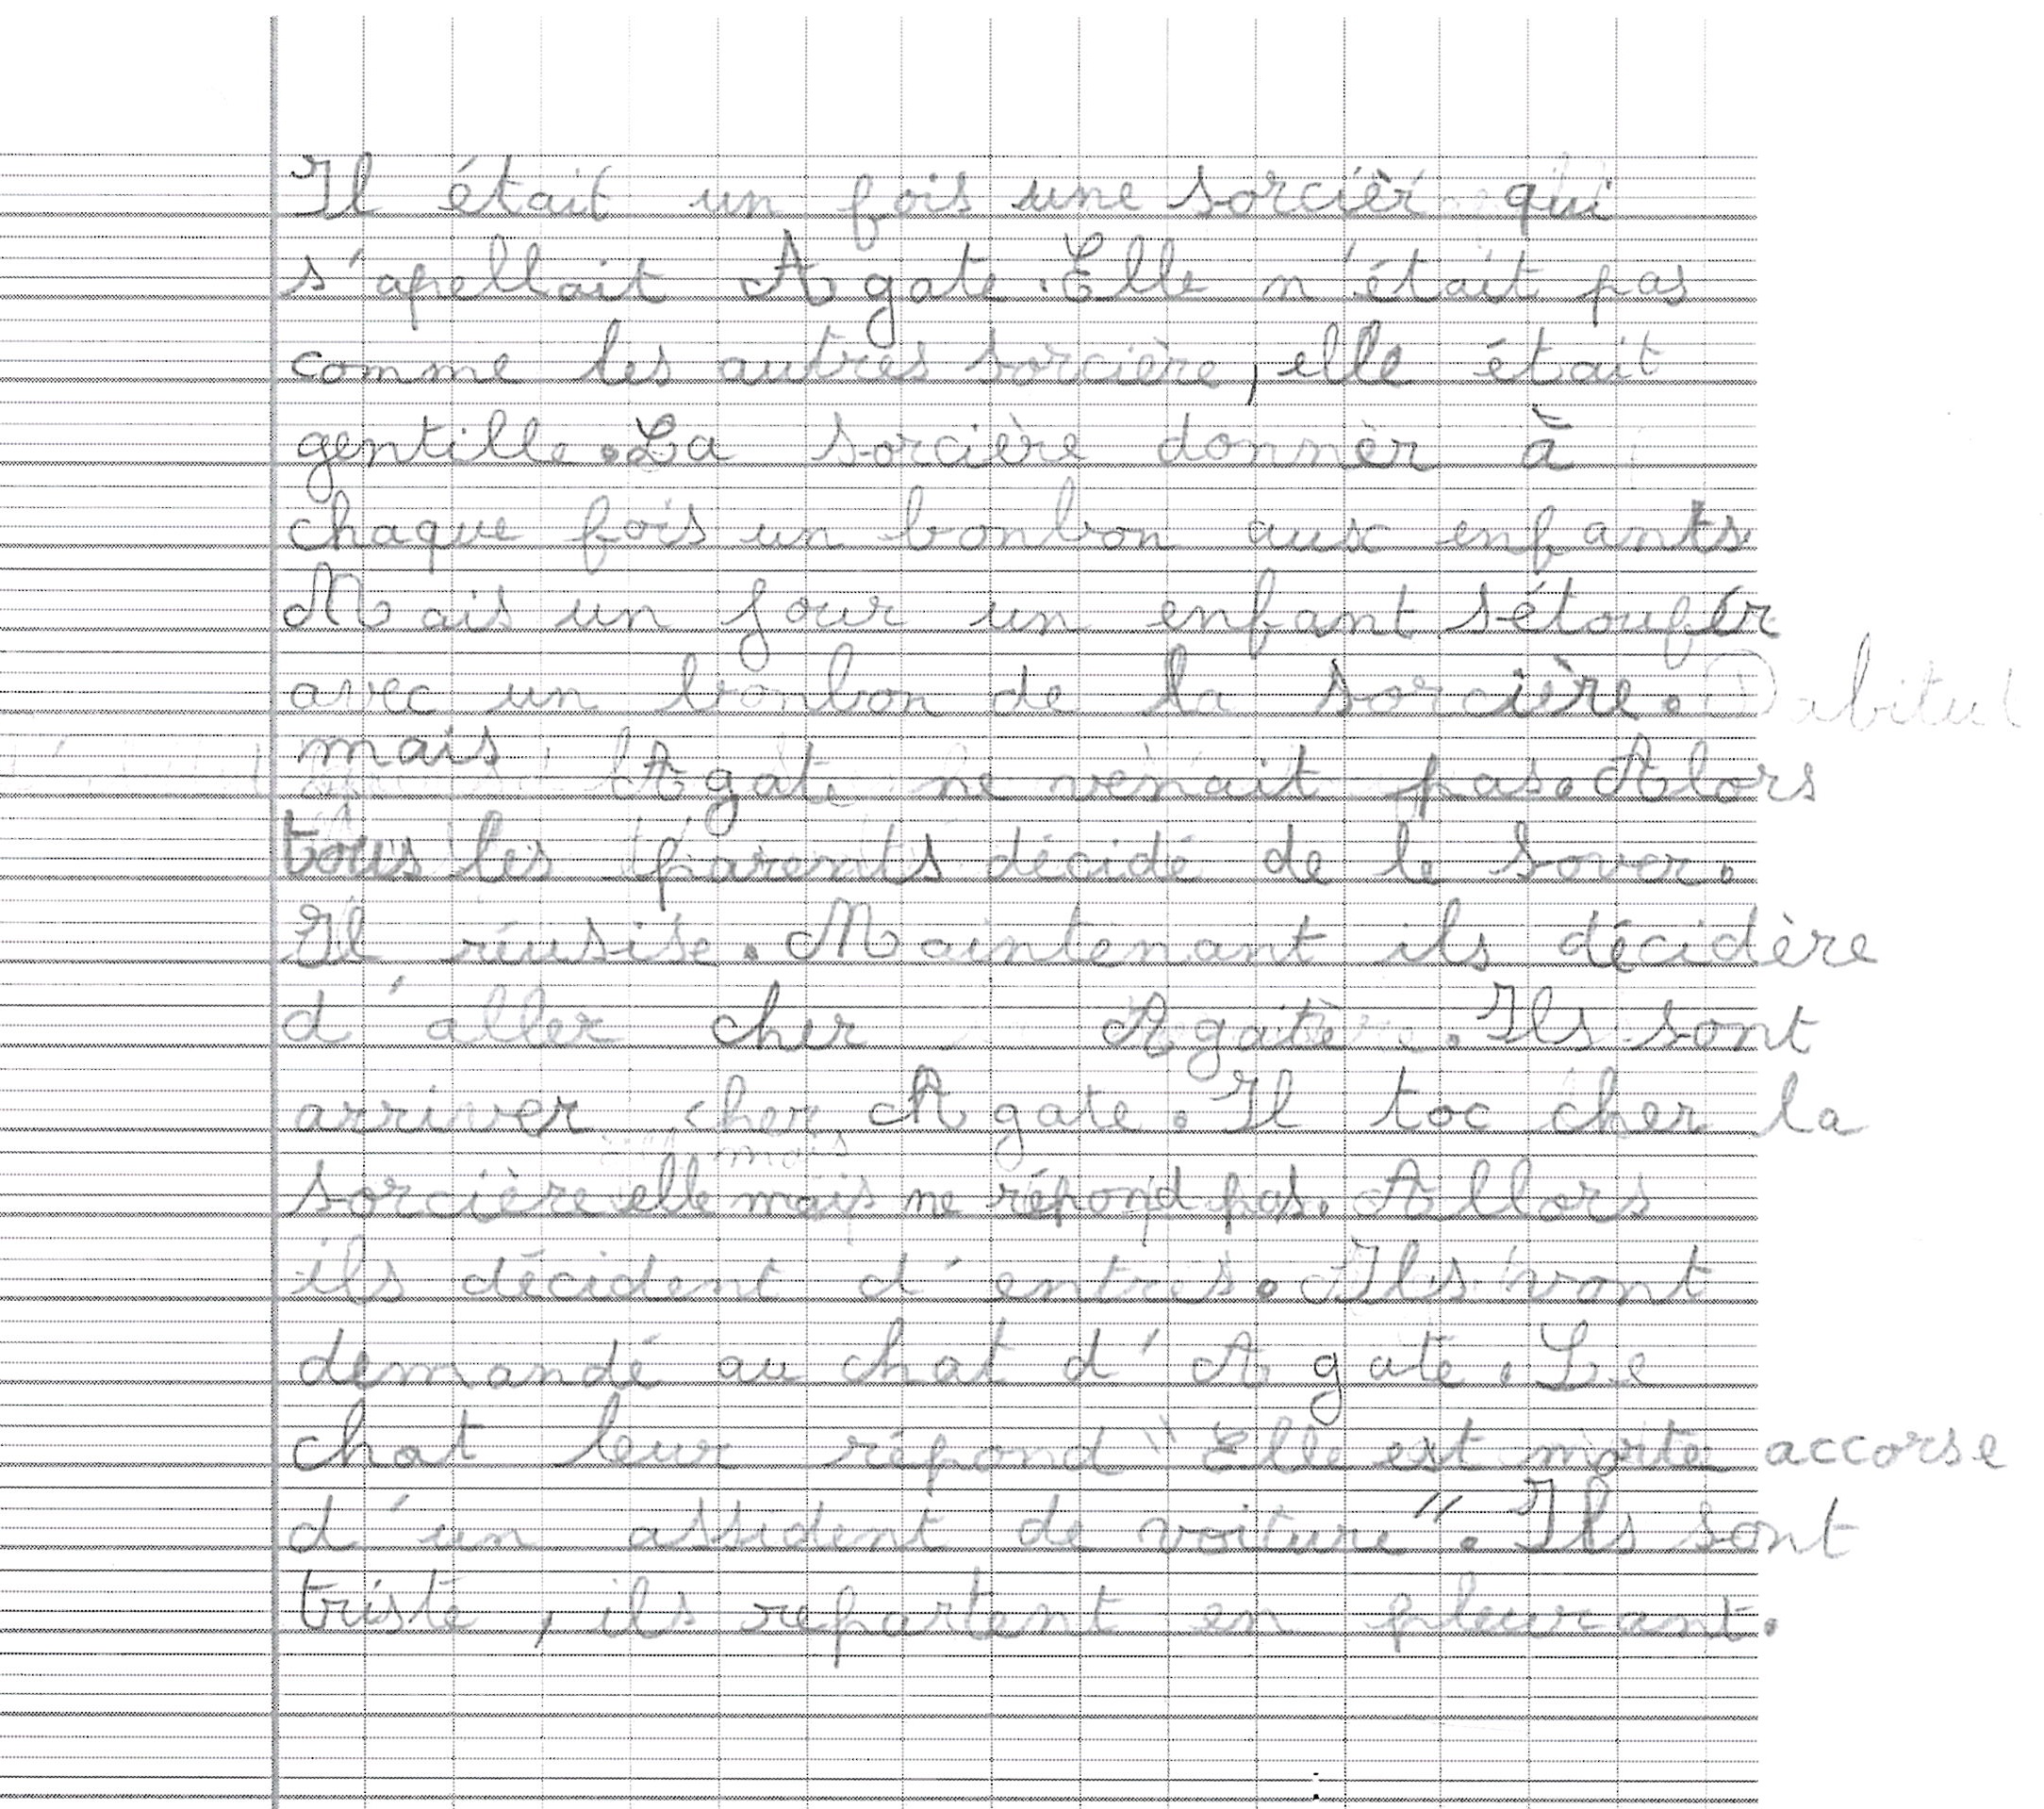 Il était un fois une sorcièr qui
s'apellait Agate. Elle n'était pas
comme les autres sorcière, elle était
gentille. La sorcière donnèr à
chaque fois un bonbon aux enfants
Mais un jour un enfant s'étoufér
avec un bonbon de la sorcière. Dabitul
mais Agate ne venait pas. Alors
tous les parents décidé de le sover.
Il réusise. Maintenant ils décidère
d'aller cher Agate. Ils sont
arriver cher Agate. Il toc cher la
mais
sorcière elle mais ne répond pas. Allors
ils décident d'entres. Ils vont
demandé au chat d'Agate. Le
chat leur répond "Elle est morte accorse
d'un assident de voiture". Ils sont
triste, ils repartent en pleurant.